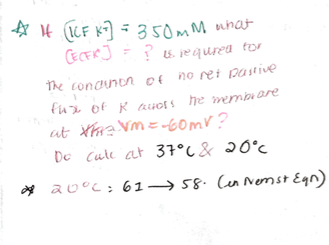 ☆ If [ICF K+] = 350mM what
[ECFK+] = ? is required for
the condition of no net passive
flux of K across the membrane
at Vm = -60mV?
Do calc at 37°C & 20°C
20°C : 61 → 58. (in Nernst Eqn)